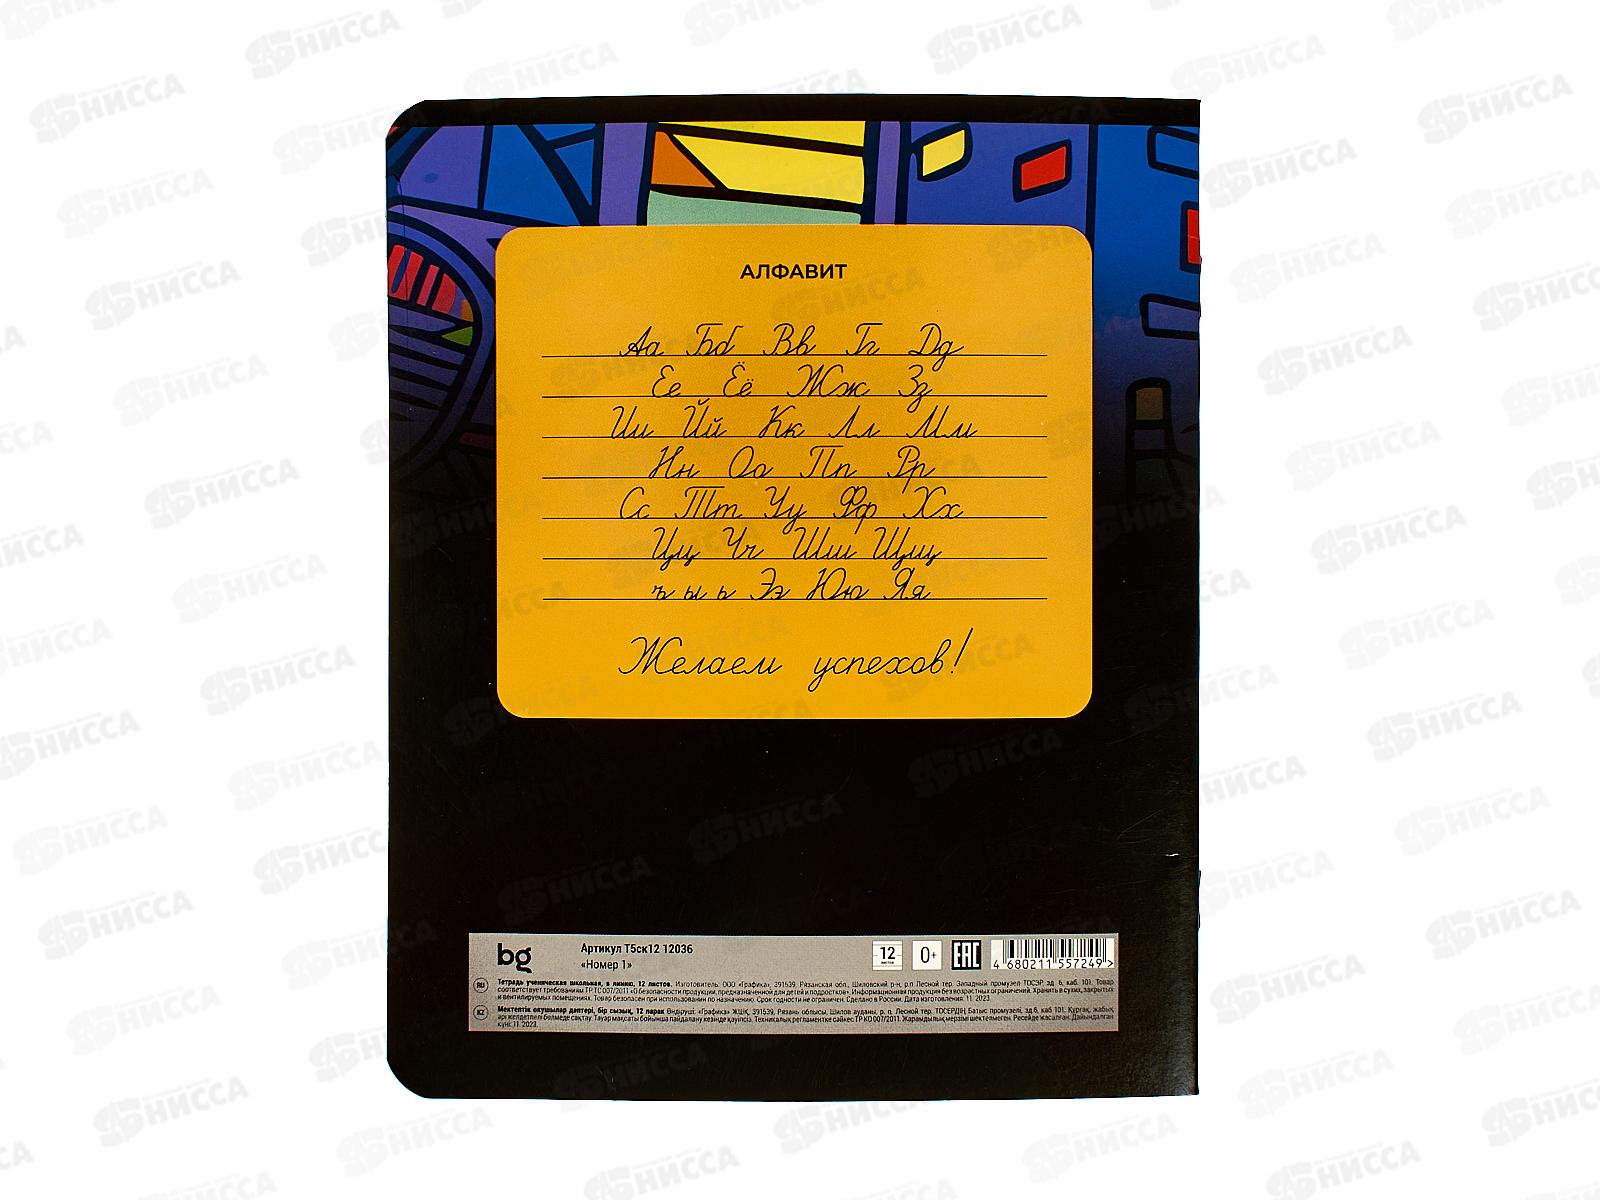 АЛФАВИТ
Аа Бб Вв Гг Дд
Ее Ёё Жж Зз
Ии Йй Кк Лл Мм
Нн Оо Пп Рр
Сс Тт Уу Фф Хх
Цц Чч Шш Щщ
ъ ы ь Ээ Юю Яя
Желаем успехов!
bg
Артикул Т5ск12 12036
«Номер 1»
12
листов
0+
EAC
4 680211 557249 >
RU
Тетрадь ученическая школьная, в линию, 12 листов. Изготовитель: ООО «Графика», 391539, Рязанская обл., Шиловский р-н, р.п. Лесной тер. Западный промузел ТОСЭР, зд. 6, каб. 101. Товар
соответствует требованиям ТР ТС 007/2011 «О безопасности продукции, предназначенной для детей и подростков». Информационная продукция без возрастных ограничений. Хранить в сухих, закрытых
и вентилируемых помещениях. Товар безопасен при использовании по назначению. Срок годности не ограничен. Сделано в России. Дата изготовления: 11. 2023.
KZ
Мектептік оқушылар дәптері, бір сызық, 12 парақ Өндіруші: «Графика» ЖШҚ, 391539, Рязань облысы, Шилов ауданы, р. п. Лесной тер. ТОСЕРДІҢ Батыс промузелі, зд.6, каб 101. Құрғақ, жабық
әрі желдетілетін бөлмеде сақтау. Тауар мақсаты бойынша пайдалану кезінде қауіпсіз. Техникалық регламентке сәйкес ТР КО 007/2011. Жарамдылық мерзімі шектелмеген. Ресейде жасалған. Дайындалған
күні: 11. 2023.
НИССА